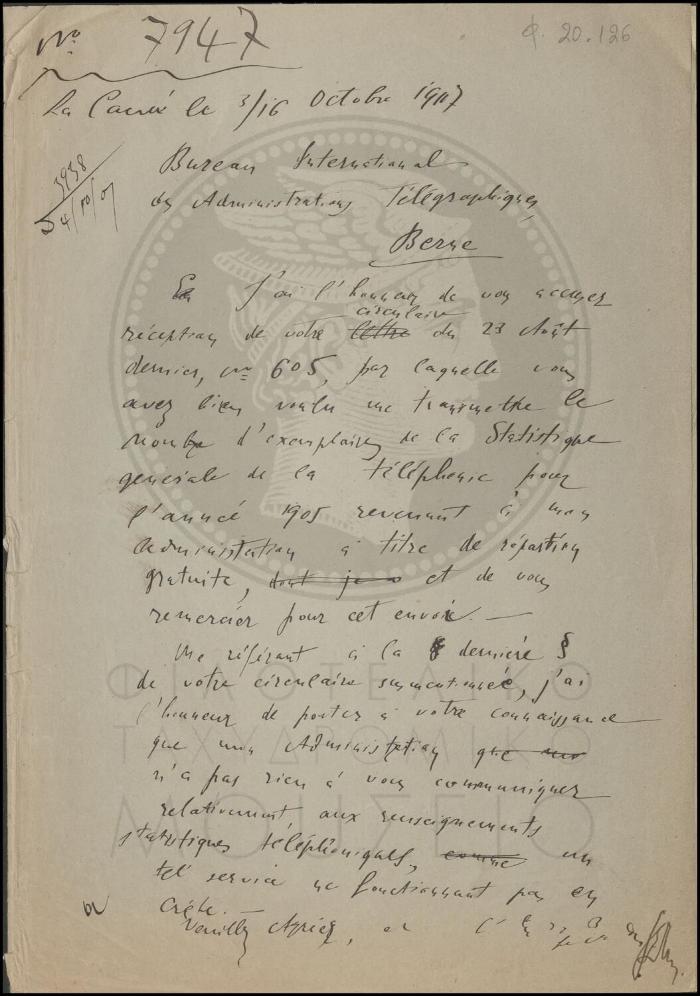 No. 7947
Q. 20.126
La Canée le 3/16 Octobre 1907
3938
4/10/07
Bureau International
des Administrations Télégraphiques
Berne
En J'ai l'honneur de vous accuser
circulaire
réception de votre lettre du 23 Août
dernier, No 605, par laquelle vous
avez bien voulu me transmettre le
nombre d'exemplaires de la Statistique
generale de la téléphonie pour
l'année 1905 revenant à mon
Administration à titre de répartition
gratuite, dont je et de vous
remercier pour cet envoi. —
Me référant à la dernière §
de votre circulaire summentionnée, j'ai
l'honneur de porter à votre connaissance
que mon Administration que mo
n'a pas rien à vous communiquer
relativement aux renseignements
statistiques téléphoniques, comme un
tel service ne fonctionnant pas en
Crète. —
Veuillez Agréer,
ΦΙΛΟΤΕΛΙΚΟ
ΤΑΧΥΔΡΟΜΙΚΟ
ΜΟΥΣΕΙΟ